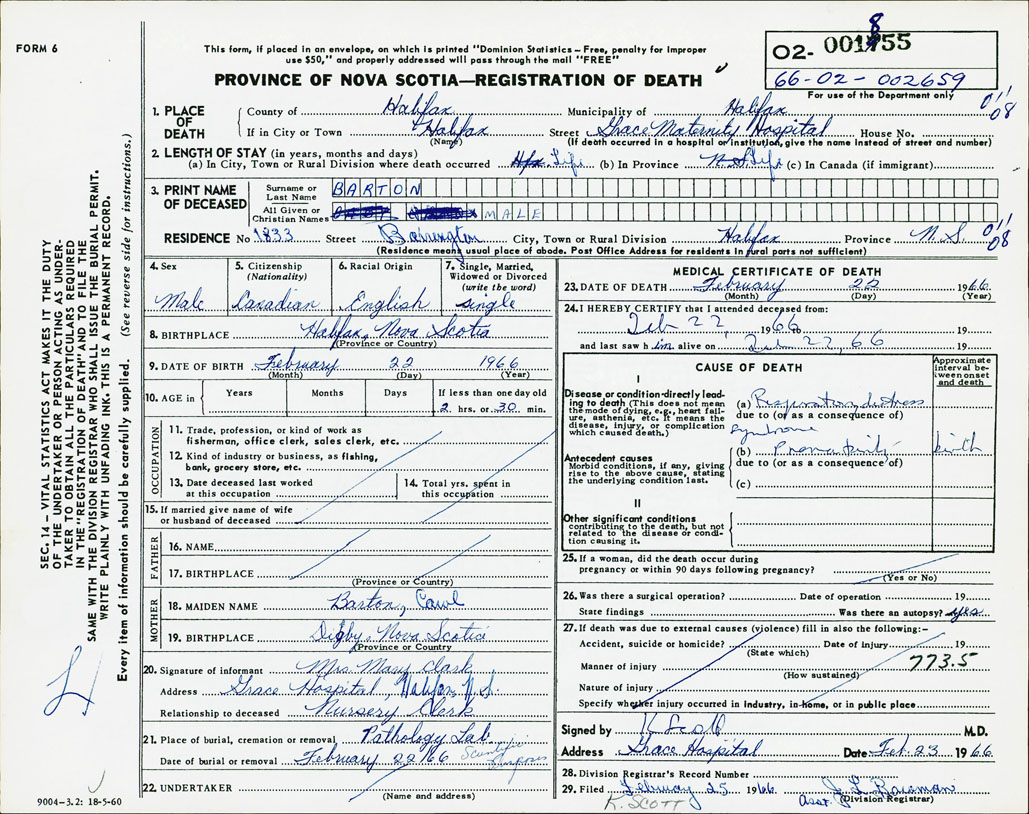 FORM 6
This form, if placed in an envelope, on which is printed "Dominion Statistics—Free, penalty for improper
use $50," and properly addressed will pass through the mail "FREE"
PROVINCE OF NOVA SCOTIA—REGISTRATION OF DEATH
8
02- 001855
66-02-002659
For use of the Department only
1. PLACE OF DEATH
County of Halifax Municipality of Halifax
If in City or Town Halifax Street Grace Maternity Hospital House No.
(Name) (If death occurred in a hospital or institution, give the name instead of street and number)
2. LENGTH OF STAY (in years, months and days)
(a) In City, Town or Rural Division where death occurred Life (b) In Province Life (c) In Canada (if immigrant)
3. PRINT NAME OF DECEASED
Surname or Last Name BARTON
All Given or Christian Names MALE
RESIDENCE No 1833 Street Barrington City, Town or Rural Division Halifax Province N.S.
(Residence means usual place of abode. Post Office Address for residents in rural parts not sufficient)
4. Sex Male
5. Citizenship (Nationality) Canadian
6. Racial Origin English
7. Single, Married, Widowed or Divorced (write the word) single
8. BIRTHPLACE Halifax, Nova Scotia
(Province or Country)
9. DATE OF BIRTH February 22 1966
(Month) (Day) (Year)
10. AGE in Years Months Days If less than one day old
2 hrs. or 30 min.
OCCUPATION
11. Trade, profession, or kind of work as fisherman, office clerk, sales clerk, etc.
12. Kind of industry or business, as fishing, bank, grocery store, etc.
13. Date deceased last worked at this occupation
14. Total yrs. spent in this occupation
15. If married give name of wife or husband of deceased
FATHER
16. NAME
17. BIRTHPLACE
(Province or Country)
MOTHER
18. MAIDEN NAME Barton, Carol
19. BIRTHPLACE Digby, Nova Scotia
(Province or Country)
20. Signature of informant Mrs. Mary Clark
Address Grace Hospital, Halifax, N.S.
Relationship to deceased Nursery Clerk
21. Place of burial, cremation or removal Pathology Lab
Scientific Purposes
Date of burial or removal February 22/66
22. UNDERTAKER
(Name and address)
9004—3.2: 18-5-60
MEDICAL CERTIFICATE OF DEATH
23. DATE OF DEATH February 22 1966
(Month) (Day) (Year)
24. I HEREBY CERTIFY that I attended deceased from:
Feb 22 1966 19
and last saw him alive on Feb 22, 66 19
CAUSE OF DEATH
Approximate interval between onset and death
I
Disease or condition directly leading to death (This does not mean the mode of dying, e.g., heart failure, asthenia, etc. It means the disease, injury, or complication which caused death.)
(a) Respiratory distress
due to (or as a consequence of)
syndrome
Antecedent causes
Morbid conditions, if any, giving rise to the above cause, stating the underlying condition last.
(b) Prematurity birth
due to (or as a consequence of)
(c)
II
Other significant conditions
contributing to the death, but not related to the disease or condition causing it.
25. If a woman, did the death occur during pregnancy or within 90 days following pregnancy?
(Yes or No)
26. Was there a surgical operation? Date of operation 19
State findings Was there an autopsy? yes
27. If death was due to external causes (violence) fill in also the following:-
Accident, suicide or homicide? Date of injury 19
(State which)
Manner of injury 773.5
(How sustained)
Nature of injury
Specify whether injury occurred in industry, in-home, or in public place
Signed by K Scott M.D.
Address Grace Hospital Date Feb. 23 1966
28. Division Registrar's Record Number
29. Filed February 25 1966
K. SCOTT
Asst. (Division Registrar)
SEC. 14—VITAL STATISTICS ACT MAKES IT THE DUTY
OF THE UNDERTAKER OR PERSON ACTING AS UNDER-
TAKER TO OBTAIN ALL THE PARTICULARS REQUIRED
IN THE "REGISTRATION OF DEATH" AND TO FILE THE
SAME WITH THE DIVISION REGISTRAR WHO SHALL ISSUE THE BURIAL PERMIT.
WRITE PLAINLY WITH UNFADING INK. THIS IS A PERMANENT RECORD.
Every item of information should be carefully supplied. (See reverse side for instructions.)